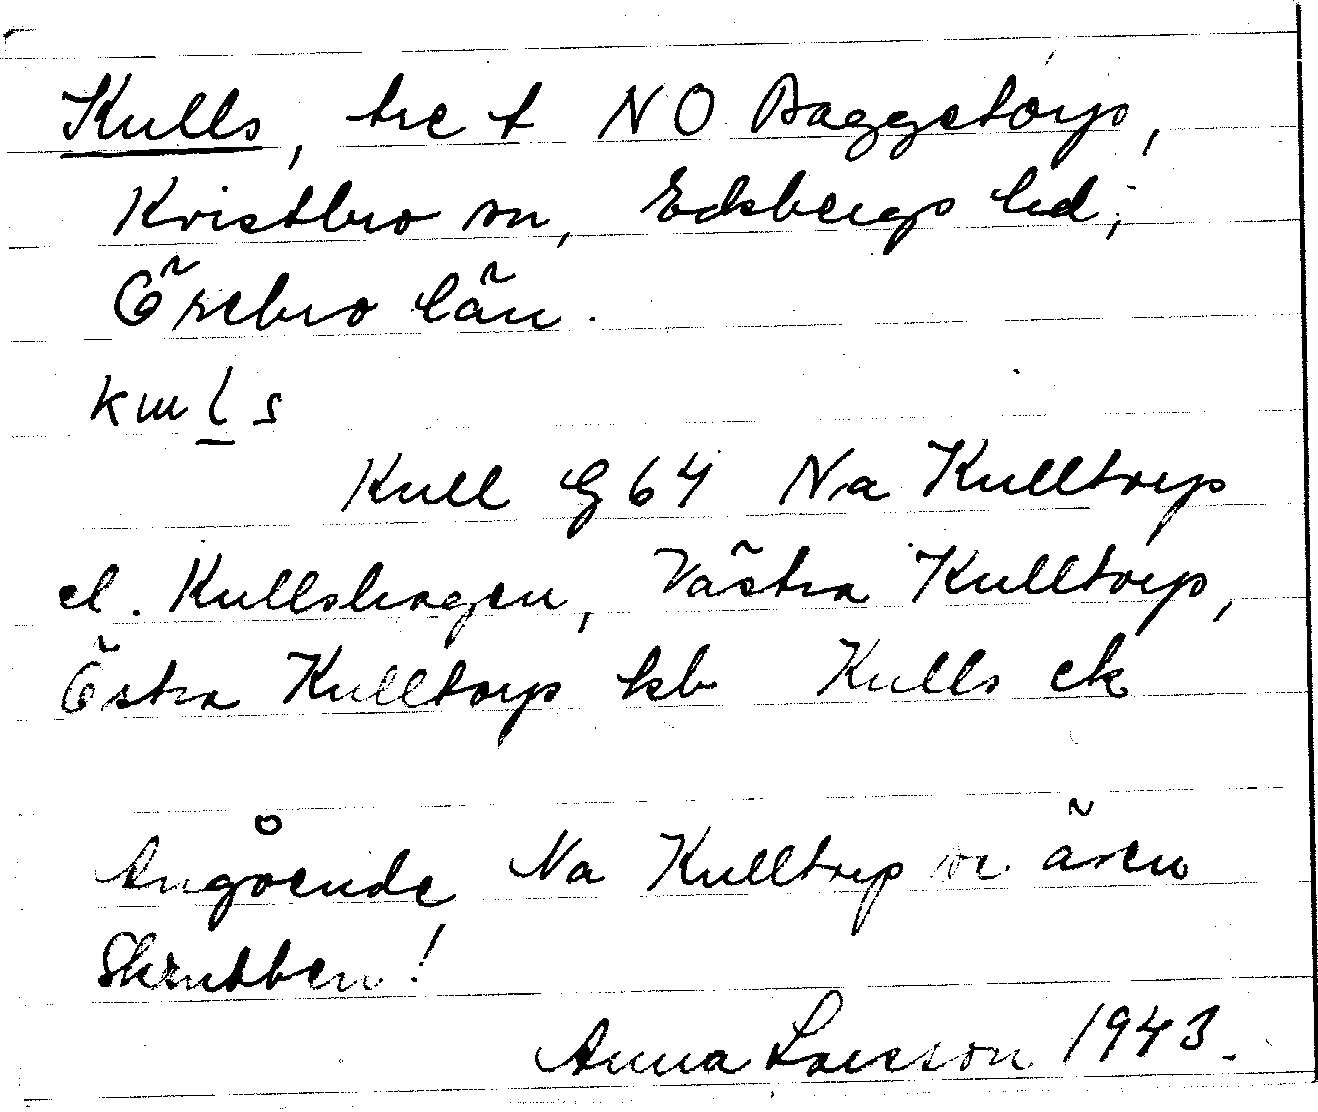 Kulls, tre t NO Baggetorp,
Kvistbro sn, Edsbergs hd,
Örebro län.
kɯls
Kull G 64 Na Kulltorp
el. Kullshagen, Västra Kulltorp,
Östra Kulltorp hb Kulls ek
Angående Na Kulltorp se även
Skrubben!
Anna Larsson 1943.